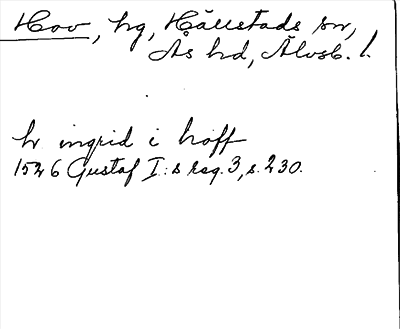 Hov, hg, Hällstads sn,
Ås hd, Älvsb. l.
hr ingrid i hoff
1526 Gustaf I:s reg. 3, s. 230.